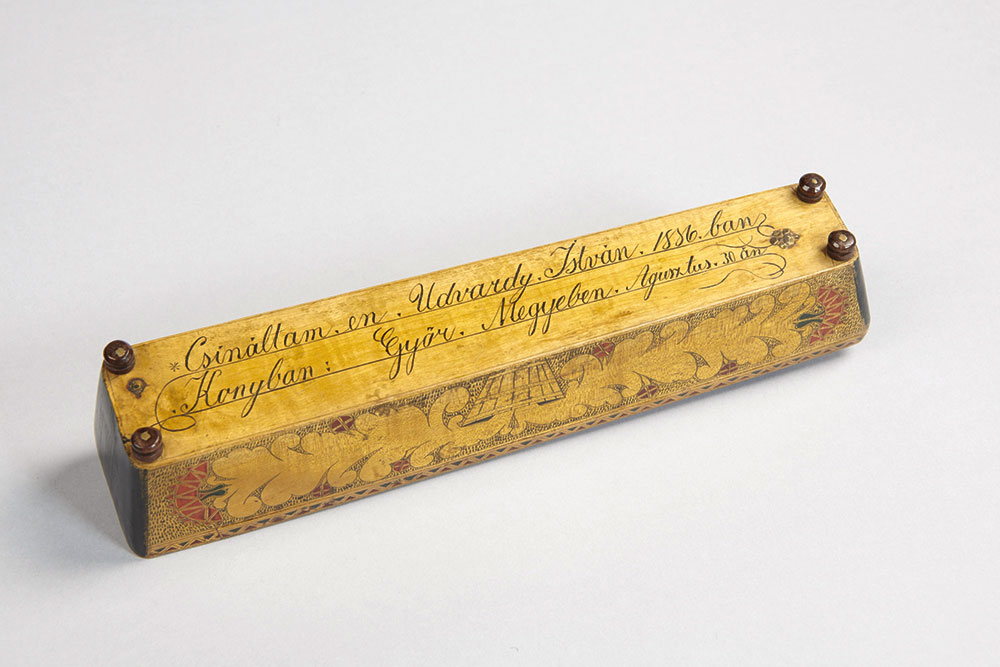 * Csináltam. en. Udvardy. István. 1886. ban
Konyban: Győr. Megyeben. Agusztus. 30 án